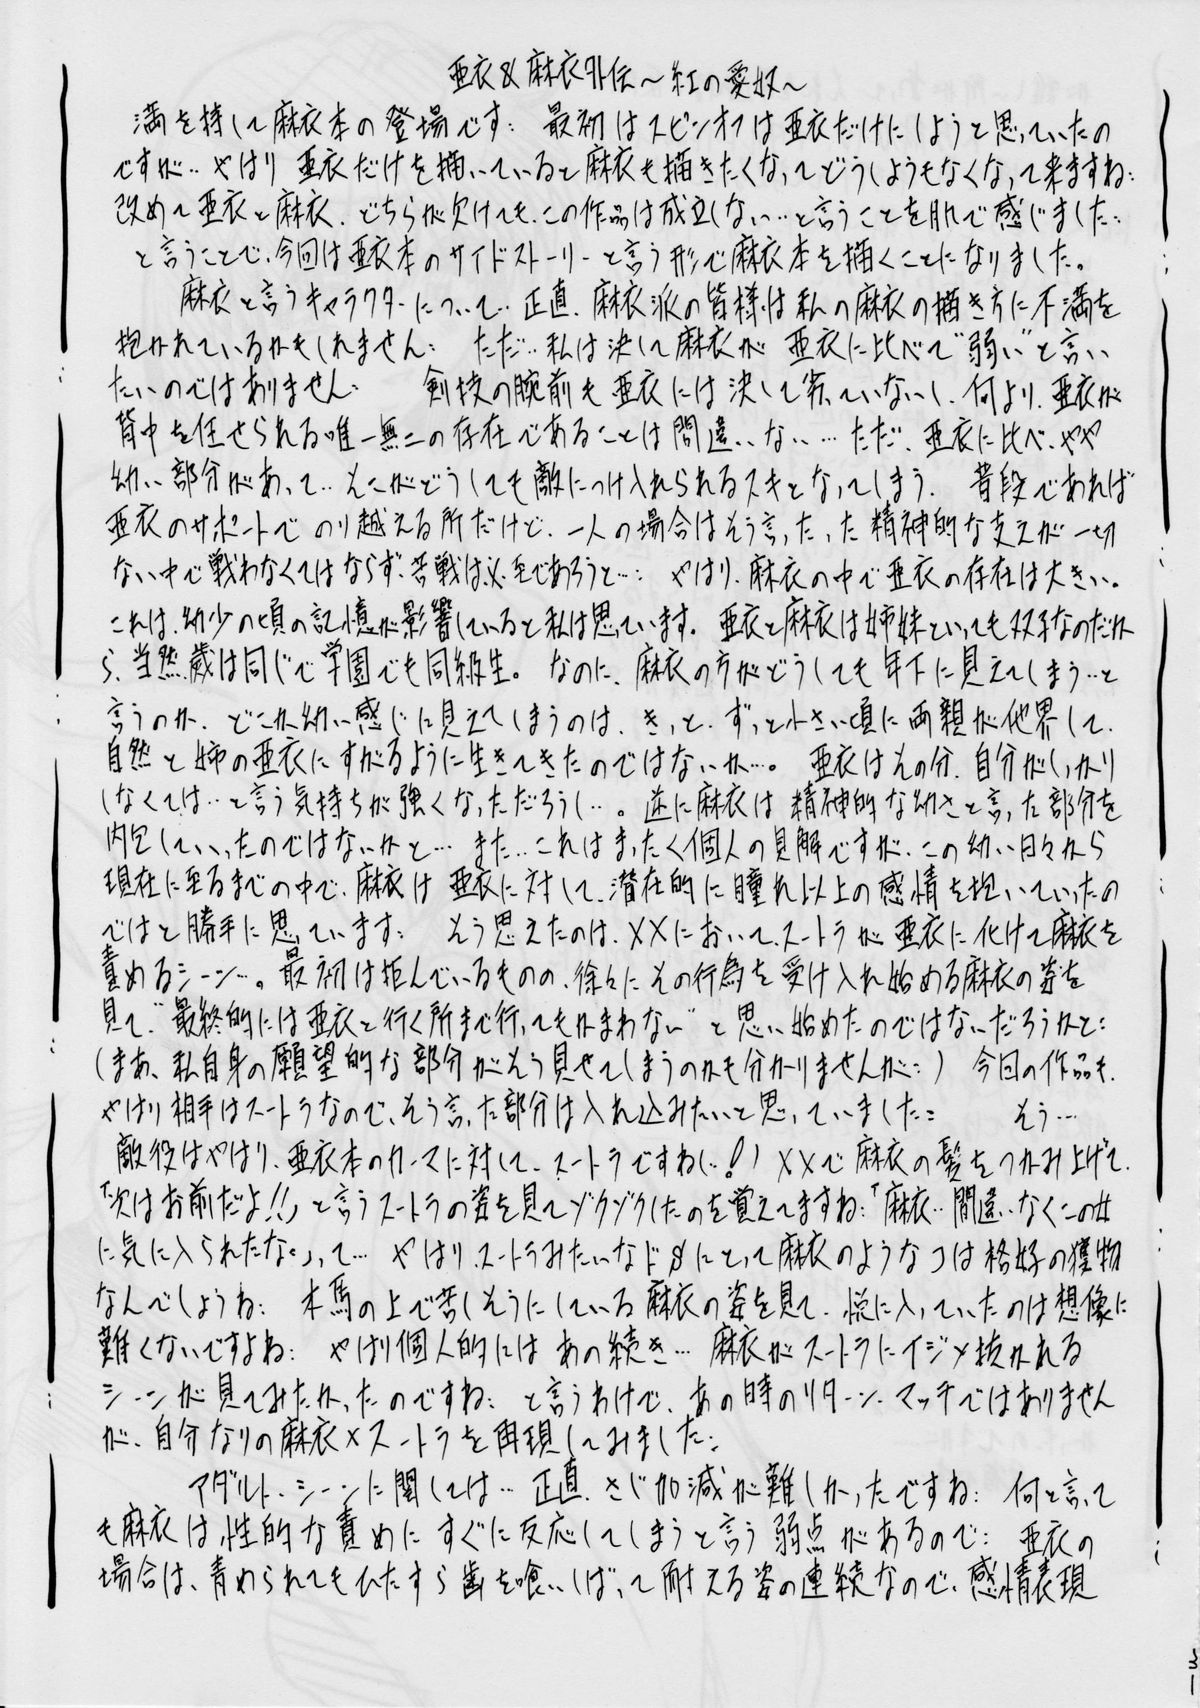 亜衣&麻衣外伝～紅の愛奴～
満を持して麻衣本の登場です: 最初はスピンオフは亜衣だけにしようと思っていたの
ですが‥やはり 亜衣だけを描いていると麻衣も描きたくなってどうしようもなくなって来ますね:
改めて亜衣と麻衣、どちらが欠けても、この作品は成立しない…と言うことを肌で感じました:
と言うことで、今回は亜衣本のサイドストーリーと言う形で麻衣本を描くことになりました。
麻衣と言うキャラクターについて… 正直、麻衣派の皆様は私の麻衣の描き方に不満を
抱かれているかもしれません: ただ‥私は決して麻衣が 亜衣に比べて"弱い"と言い
たいのではありません: 剣技の腕前も亜衣には決して劣っていないし、何より、亜衣が
背中を任せられる唯一無二の存在であることは間違いない… ただ、亜衣に比べ、やや
幼い部分があって… そこがどうしても敵につけ入れられるスキとなってしまう. 普段であれば
亜衣のサポートでのり越える所だけど、一人の場合はそう言った精神的な支えが一切
ない中で戦わなくてはならず、苦戦は必至であろうと…: やはり、麻衣の中で亜衣の存在は大きい。
これは、幼少の頃の記憶が影響していると私は思っています。亜衣と麻衣は姉妹といっても双子なのだか
ら、当然歳は同じで学園でも同級生。なのに、麻衣の方がどうしても年下に見えてしまう…と
言うのか、どこか幼い感じに見えてしまうのは、きっと、ずっと小さい頃に両親が他界して、
自然と姉の亜衣にすがるように生きてきたのではないか…。 亜衣はその分、自分がしっかり
しなくては…と言う気持ちが強くなっただろうし…。逆に麻衣は精神的な幼さと言った部分を
内包していったのではないかと… また‥これはまったく個人の見解ですが、この幼い日々から
現在に至るまでの中で、麻衣は亜衣に対して、潜在的に憧れ以上の感情を抱いていったの
ではと勝手に思っています: そう思えたのは、XXにおいて、スートラが亜衣に化けて麻衣を
責めるシーン…。最初は拒んでいるものの、徐々にその行為を受け入れ始める麻衣の姿を
見て、"最終的には亜衣と行く所まで行ってもかまわない"と思い始めたのではないだろうかと:
(まあ、私自身の願望的な部分がそう見せてしまうのかも分かりませんが:) 今回の作品も、
やはり相手はスートラなので、そう言った部分は入れ込みたいと思っていました: そう…
敵役はやはり、亜衣本のカーマに対して、スートラですね(‥!) XXで麻衣の髪をつかみ上げて、
「次はお前だよ!!」と言うスートラの姿を見てゾクゾクしたのを覚えてますね:「麻衣‥間違いなくこの女
に気に入られたな。」って… やはり、スートラみたいなドSにとって麻衣のようなコは格好の獲物
なんでしょうね: 木馬の上で苦しそうにしている麻衣の姿を見て、悦に入っていたのは想像に
難くないですよね: やはり個人的にはあの続き… 麻衣がスートラにイジメ抜かれる
シーンが見てみたかったのですね: と言うわけで、あの時のリターン・マッチではありません
が、自分なりの麻衣×スートラを再現してみました:
アダルト・シーンに関しては… 正直、さじ加減が難しかったですね: 何と言って
も麻衣は、性的な責めにすぐに反応してしまうと言う弱点があるので: 亜衣の
場合は、責められてもひたすら歯を喰いしばって耐える姿の連続なので、感情表現
31